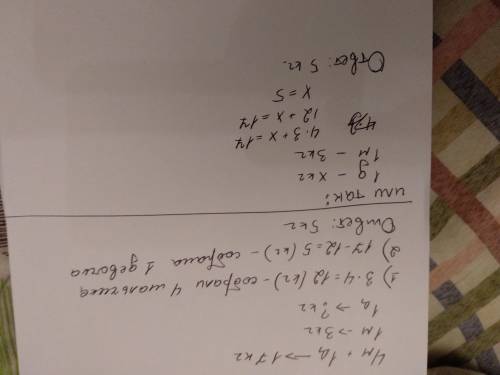 4м + 1д → 17кг
1м → 3кг
1д → ?кг
1) 3·4=12 (кг) - собрали 4 мальчика
2) 17-12=5 (кг) - собрала 1 девочка
Ответ: 5кг
или так:
1д - xкг
1м - 3кг
4·3+x=17
12+x=17
x=5
Ответ: 5 кг.